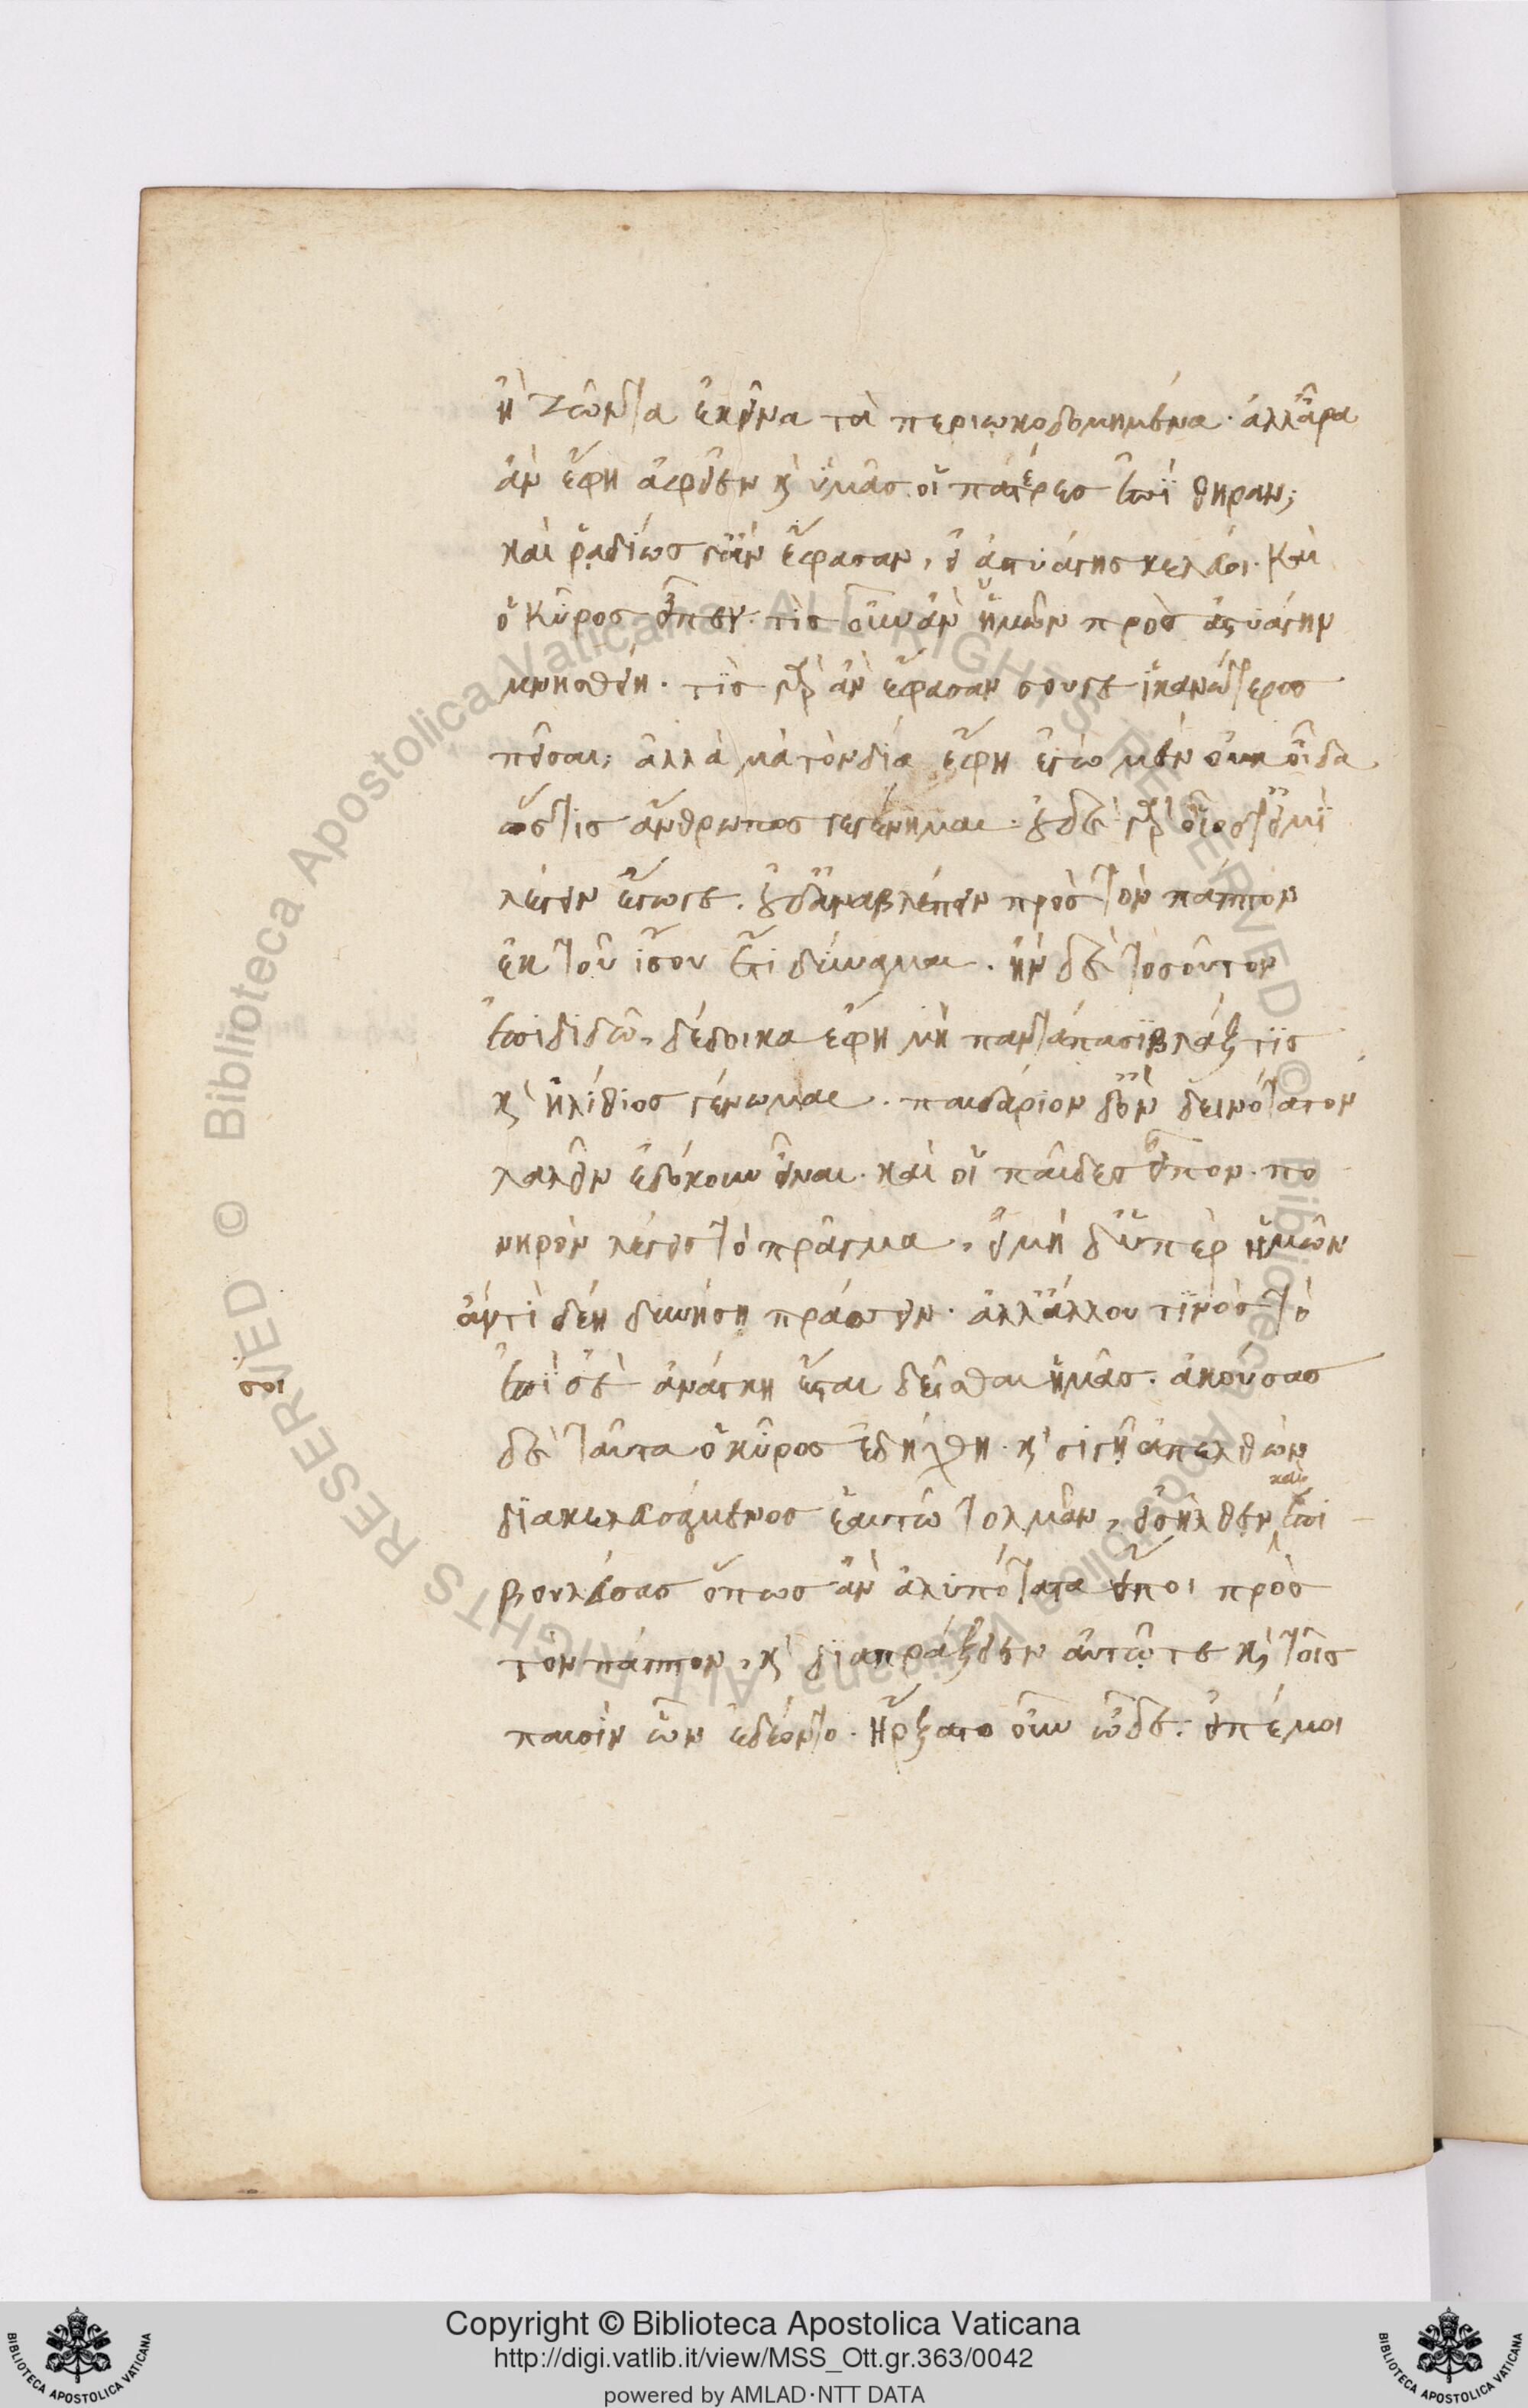 ἢ ζῶντα ἐκεῖνα τὰ περιῳκοδομημένα. ἀλλ' ἆρα
ἂν ἔφη ἀφεῖεν καὶ ὑμᾶς οἱ πατέρες ἐπὶ θήραν;
καὶ ῥᾳδίως γ' ἂν ἔφασαν, εἰ ἀστυάγης κελεύοι. Καὶ
ὁ Κῦρος εἶπεν. τὶς οὖν ἂν ἡμῶν πρὸς ἀστυάγην
μνησθείη. τὶς γὰρ ἂν ἔφασαν σοῦ γε ἱκανώτερος
πεῖσαι; ἀλλὰ μὰ τὸν δία ἔφη ἐγὼ μὲν οὐκ οἶδα
ὅστις ἄνθρωπος γεγένημαι. οὐδὲ γὰρ οἷός τ' εἰμὶ
λέγειν ἔγωγε. οὐδ' ἀναβλέπειν πρὸς τὸν πάππον
ἐκ τοῦ ἴσου ἔτι δύναμαι. ἢν δὲ τοσοῦτον
ἐπιδιδῶ, δέδοικα ἔφη μὴ παντάπασι βλάξ τις
καὶ ἠλίθιος γένωμαι. παιδάριον δ' ὢν δεινότατον
λαλεῖν ἐδόκουν εἶναι. καὶ οἱ παῖδες εἶπον. πο
νηρὸν λέγεις τὸ πρᾶγμα, εἰ μὴ δ' ὑπὲρ ἡμῶν
ἄν τι δέῃ δυνήσῃ πράττειν. ἀλλ' ἄλλου τινὸς τὸ
ἐπὶ σὲ ἀνάγκη ἔσται δεῖσθαι ἡμᾶς. ἀκούσας
σοι
δὲ ταῦτα ὁ κῦρος ἐδήχθη. καὶ σιγῇ ἀπελθὼν
διακελευσάμενος ἑαυτῶ τολμᾶν, εἰσῆλθεν καὶ ἐπι
βουλεύσας ὅπως ἂν ἀλυπότατα εἴποι πρὸς
τὸν πάππον, καὶ διαπράξειεν αὐτῷ τε καὶ τοῖς
παισὶν ὧν ἐδέοντο. Ἤρξατο οὖν ὧδε. εἰπέ μοι
Copyright © Biblioteca Apostolica Vaticana
http://digi.vatlib.it/view/MSS_Ott.gr.363/0042
powered by AMLAD·NTT DATA